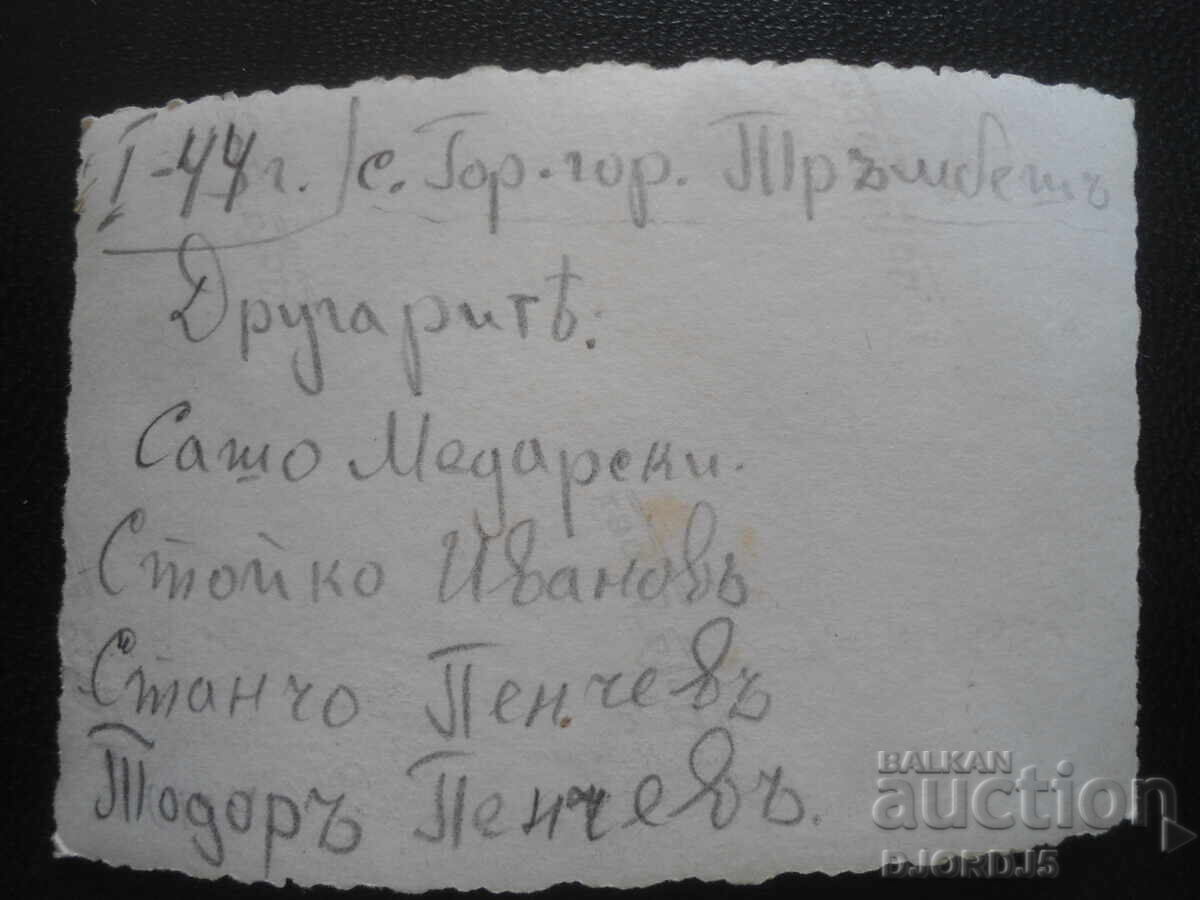 I-44 г. / с. Гор. гор. Тръмбешъ
Другаритѣ:
Сашо Медарски.
Стойко Ивановъ
Станчо Пенчевъ
Тодоръ Пенчевъ.
BALKAN
auction
DJORDJ5